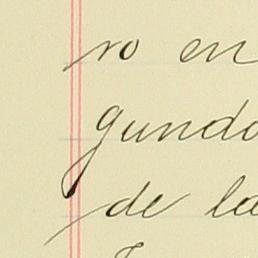 ro en
gundo
de la